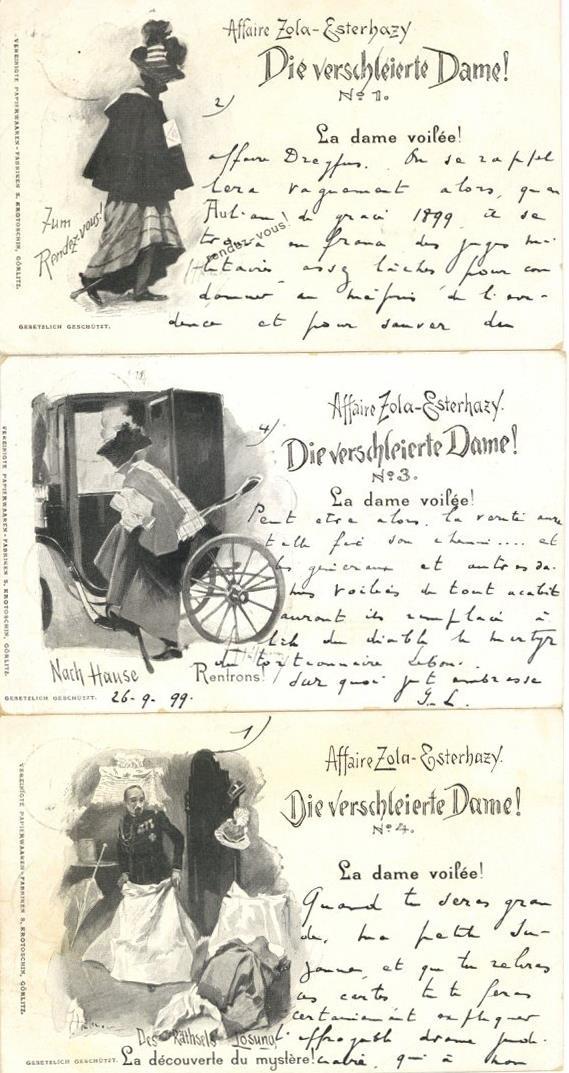 Affaire Zola-Esterhazy
Die verschleierte Dame!
No 1.
2)
La dame voilée!
affaire Dreyfus. On se rappel
lera vaguement alors, qu'en
l'an de grace 1899 il se
trouva en France des juges mi-
litaires assez lâches pour con
damner au mépris de l'évi-
dence et pour sauver des
Zum
Rendez-vous!
rendez-vous!
GESETZLICH GESCHÜTZT.
VEREINIGTE PAPIERWAAREN-FABRIKEN S. KROTOSCHIN, GÖRLITZ.
Affaire Zola-Esterhazy.
4)
Die verschleierte Dame!
No 3.
La dame voilée!
Peut etre alors, la verité aura
t elle fait son chemin.... et
les généraux et autres da-
mes voilées de tout acabit
auront ils remplacé à
l'ile du diable le martyr
du tortionnaire Lebon.
Sur quoi je t'embrasse
G. L.
Nach Hause
Rentrons!
GESETZLICH GESCHÜTZT.
26-9-99.
VEREINIGTE PAPIERWAAREN-FABRIKEN S. KROTOSCHIN, GÖRLITZ.
1)
Affaire Zola-Esterhazy.
Die verschleierte Dame!
No 4.
La dame voilée!
Quand tu seras gran
de, ma petite Su-
zanne, et que tu reliras
ces cartes tu te feras
certainement expliquer
l'effroyable drame judi-
ciaire, qui a nom
Des Räthsels Lösung!
La découverte du mystère!
GESETZLICH GESCHÜTZT.
VEREINIGTE PAPIERWAAREN-FABRIKEN S. KROTOSCHIN, GÖRLITZ.